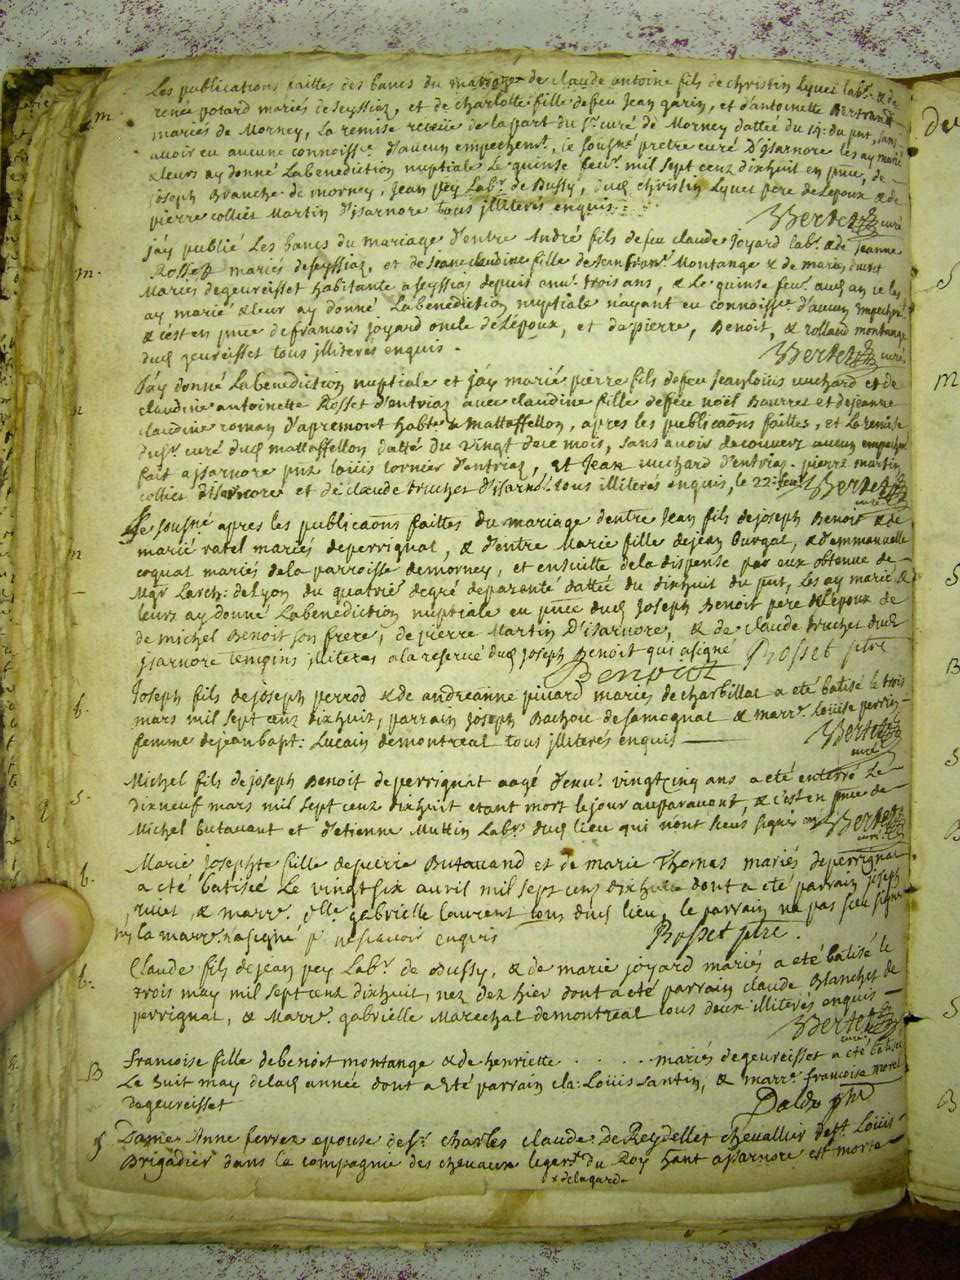 Les publications faittes des bancs du mariage de claude antoine fils de christin Lyuet labr. & de
m. renée potard mariés de seyssiaz, et de charlotte fille de feu Jean garin, et d'antoinette Bertrand
mariés de Morney, La remise receüe de la part du sr. curé de Morney dattée du 14: du pnt, sans
avoir eu aucune connoissce. d'aucun empechemt., je sousné prêtre curé D'jsarnore les ay marié
& leurs ay donné La benediction nuptiale Le quinse feur. mil sept cens dixhuit en pnce, de
joseph Branche de morney, Jean pey Labr. de Bussy, dud christin Lyuet pere de Lepoux & de
pierre collier Martin d'jsarnore tous jlliterés enquis
Verdet curé
jáy publié Les bancs du mariage d'entre André fils de feu claude Joyard labr. & de Jeanne
m. Rosset mariés de seyssiaz, et de Jeane claudine fille de Jean Franc. Montange & de marie
Mariés de geureisset habitante a seyssiaz depuis anv. trois ans, & Le quinse feur. aud an je les
ay marié & leur ay donné La benediction nuptiale nayant eu connoissce d'aucun empechmt
& c'est en pnce de francois joyard oncle de Lépoux, et de pierre, Benoit, & rolland montange
dud geureisset tous jlliterés enquis.
Verdet curé
Jáy donné La benediction nuptiale et jáy marié pierre fils de feu Jean loüis uuchard et de
claudine antoinette Rosset d'entriaz avec claudine fille de feu noël Bourret et de jeanne
claudine roman d'apremont habte a mattaffellon, apres les publicaõns faittes, et La remise
du sr. curé dud mattaffellon dattée du vingt de ce mois, sans avoir decouvert aucun empechmt
fait a jsarnore pnt loüis tornier d'entriaz, et Jean uuchard d'entriaz. pierre martin
collier d'jsarnore et de claude truchet d'jsarnore tous jlliterés enquis, le 22e feur
Verdet curé
Je sousné apres les publicaõns faittes du mariage dentre Jean fils de joseph Benoit & de
m marie ratel mariés de perrignat, & d'entre Marie fille de jean Burgat, & d'emmanuelle
coquat mariés de la parroisse de morney, et ensuitte de la dispense par eux obtenue de
Mgr Larch: de Lyon du quatrié degré de parenté dattée du dixhuit du pnt, Les ay marié &
leurs ay donné La benediction nuptiale en pnce dud Joseph Benoit pere de Lepoux de
de michel Benoit son frere, de pierre Martin D'jsarnore, & de claude truchet dud
jsarnore temoins jlliteres a la reserue dud joseph Benoit qui a signé
Benoit Rosset ptre
b. Joseph fils de joseph perrod & de andreanne piuard mariés de charbillat a eté batisé le trois
mars mil sept cens dixhuit, parrain joseph Bachod de samognat & marre. loüise perrin
femme de jean bapt: Lucain de montreal tous jlliterés enquis
Verdet curé
s Michel fils de joseph Benoit de perrignat aagé d'env. vingt cinq ans a eté enterré Le
dixneuf mars mil sept cens dixhuit etant mort le jour auparavant, & c'est en pnce de
Michel butavant et d'etienne Muttin Labr. dud lieu qui n'ont sceus signer
Verdet curé
b. Marie josephte fille de pierre Butavand et de marie Thomas mariés de perrignat
a eté batisée Le vingt six avril mil sept cens dixhuit dont a eté parrain joseph
ruiet, & marre. elle gabrielle laurent tous dud lieu, le parrain na pas sceu signer
ny la marre. n'a signé p. ne sçavoir enquis
Rosset ptre.
b. Claude fils de jean pey Labr. de Bussy, & de marie joyard mariés a eté batisé le
trois may mil sept cens dixhuit, nez dez hier dont a eté parrain claude Blanchet de
perrignat, & Marre. gabrielle Marechal de montreal tous deux jlliterés enquis
Verdet curé
B Francoise fille de benoist montange & de henriette . . . . . mariés de geureisset a été batisée
Le huit may de lad année dont a été parrain cla: Loüis santin, & marre francoise morel
de geureisset
s Dame Anne ferrez epouse de sr. charles claude de Reydellet chevallier de st. Loüis
Brigadier dans la compagnie des chevaux legers x du Roy hant a jsarnore est morte
x de la garde